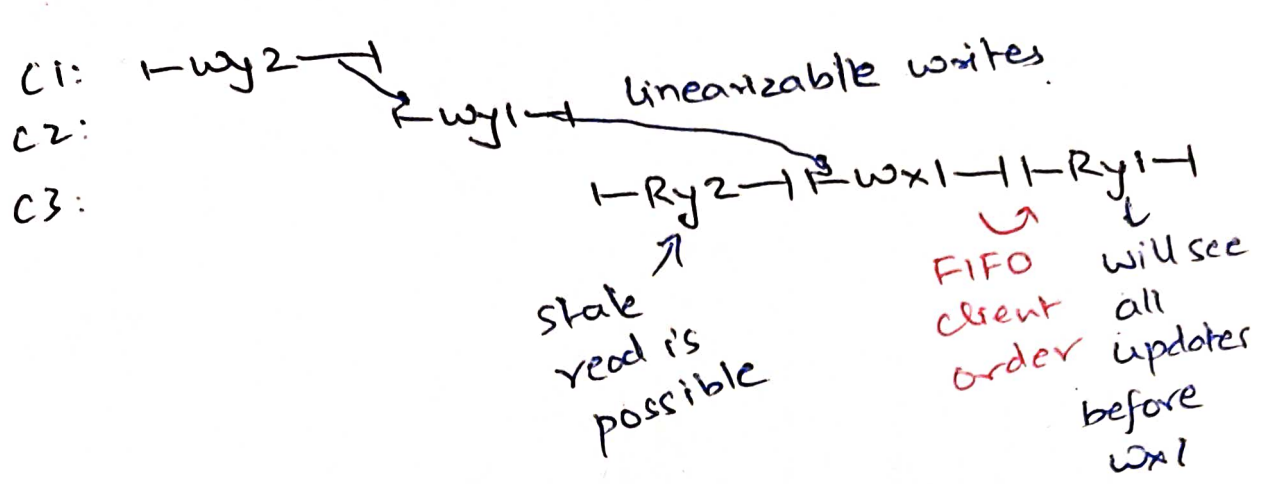 C1: Wy2
linearizable writes.
C2: Wy1
C3: Ry2 Wx1 Ry1
stale
read is
possible
FIFO
client
order
will see
all
updates
before
Wx1